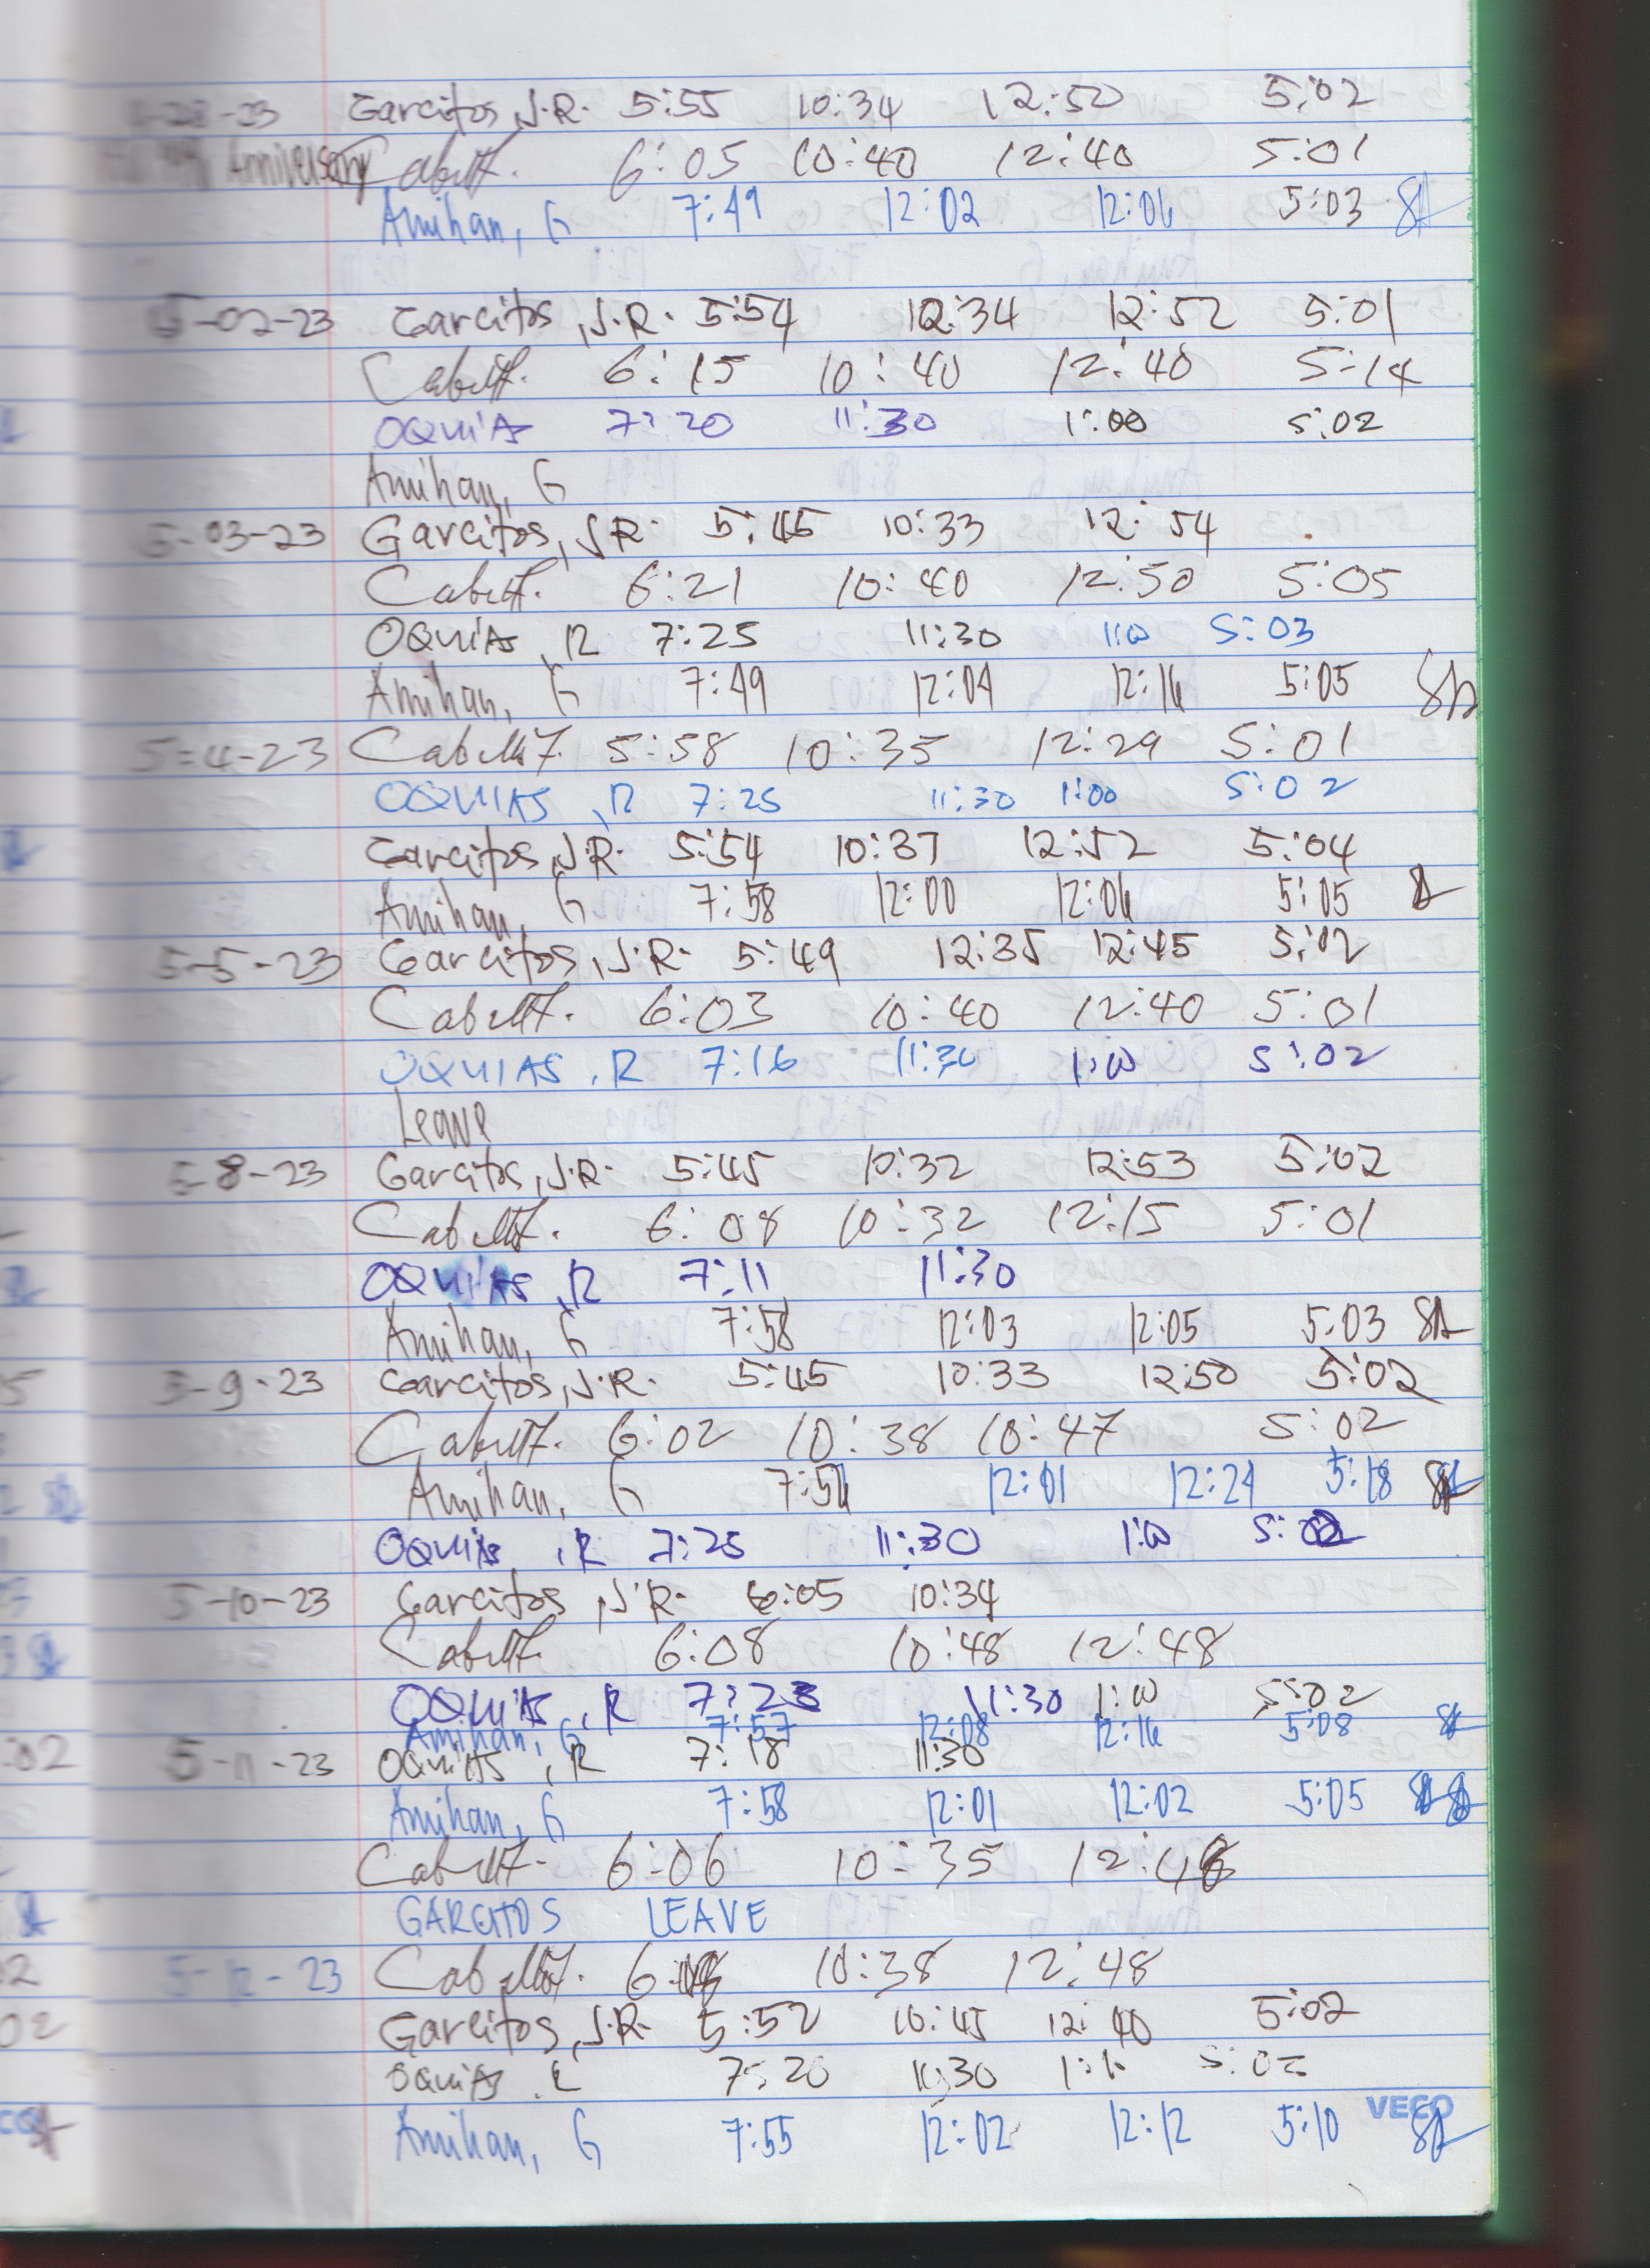 4-28-23 Garcitos, J.R. 5:55 10:34 12:50 5:02
Anniversary 6:05 10:40 12:40 5:01
Amihan, G 7:49 12:02 12:06 5:03
5-02-23 Garcitos, J.R. 5:54 12:34 12:52 5:01
6:15 10:40 12:40 5:14
OQUIAS 7:20 11:30 1:00 5:02
Amihan, G
5-03-23 Garcitos, J.R. 5:45 10:33 12:54
6:21 10:40 12:50 5:05
OQUIAS, R 7:25 11:30 1:00 5:03
Amihan, G 7:49 12:04 12:16 5:05
5-4-23 5:58 10:35 12:29 5:01
OQUIAS, R 7:25 11:30 1:00 5:02
Garcitos, J.R. 5:54 10:37 12:52 5:04
Amihan, G 7:58 12:00 12:06 5:05
5-5-23 Garcitos, J.R. 5:49 12:35 12:45 5:02
6:03 10:40 12:40 5:01
OQUIAS, R 7:16 11:30 1:00 5:02
Leave
5-8-23 Garcitos, J.R. 5:45 10:32 12:53 5:02
6:08 10:32 12:15 5:01
OQUIAS, R 7:11 11:30
Amihan, G 7:58 12:03 12:05 5:03
5-9-23 Garcitos, J.R. 5:45 10:33 12:50 5:02
6:02 10:38 10:47 5:02
Amihan, G 12:01 12:24 5:18
OQUIAS, R 7:25 11:30 1:00 5:02
5-10-23 Garcitos, J.R. 6:05 10:34
6:08 10:48 12:48
OQUIAS, R 7:23 11:30 1:00 5:02
Amihan, G 7:57 12:08 12:16 5:08
5-11-23 OQUIAS, R 7:18 11:30
Amihan, G 7:58 12:01 12:02 5:05
6:06 10:35
GARCITOS LEAVE
5-12-23 10:38 12:48
Garcitos, J.R. 5:52 10:45 12:40 5:02
OQUIAS. R 7:20 11:30 5:02
VECO
Amihan, G 7:55 12:02 12:12 5:10